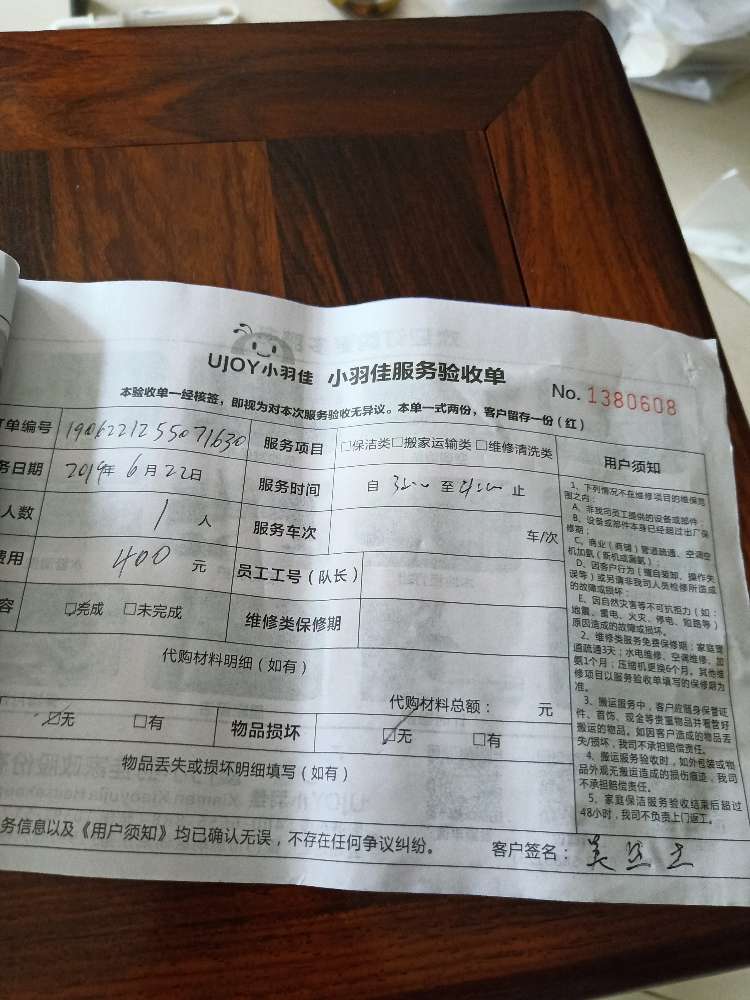 UJOY小羽佳 小羽佳服务验收单
No. 1380608
本验收单一经核签，即视为对本次服务验收无异议。本单一式两份，客户留存一份（红）
订单编号 1906221255071630 服务项目 □保洁类□搬家运输类 □维修清洗类
务日期 2019年 6月22日 服务时间 自 至 止
人数 1 人 服务车次 车/次
费用 400 元 员工工号（队长）
容 ☑完成 □未完成 维修类保修期
代购材料明细（如有）
代购材料总额： 元
☑无 □有 物品损坏 ☑无 □有
物品丢失或损坏明细填写（如有）
务信息以及《用户须知》均已确认无误，不存在任何争议纠纷。 客户签名：
用户须知
1、下列情况不在维修项目的维保范
围之内：
A、非我司员工提供的设备或部件；
B、设备或部件本身已经超过出厂保
修期；
C、商业（商铺）管道疏通、空调空
机加氨（新机或漏氨）；
D、因客户行为（擅自装卸、操作失
误等）或另请非我司人员检修所造成
的故障或损坏；
E、因自然灾害等不可抗拒力（如：
地震、雷电、火灾、停电、短路等）
原因造成的故障或损坏。
2、维修类服务免费保修期：家庭管
道疏通3天；水电维修、空调维修、加
氨1个月；压缩机更换6个月。其他维
修项目以服务验收单填写的保修期为
准。
3、搬运服务中，客户应随身保管证
件、首饰、现金等贵重物品并看管好
搬运的物品。如因客户造成的物品丢
失/损坏，我司不承担赔偿责任。
4、搬运服务验收时，如外包装或物
品外观无搬运造成的损伤痕迹，我司
不承担赔偿责任。
5、家庭保洁服务验收结束后超过
48小时，我司不负责上门返工。